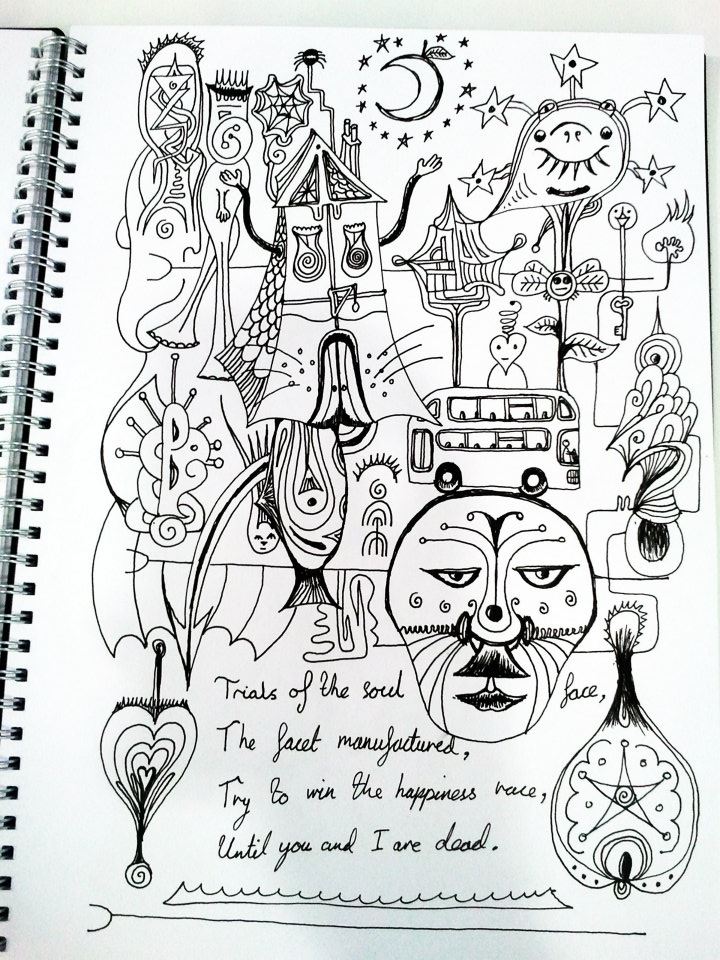 Trials of the soul face,
The facet manufactured,
Try to win the happiness race,
Until you and I are dead.